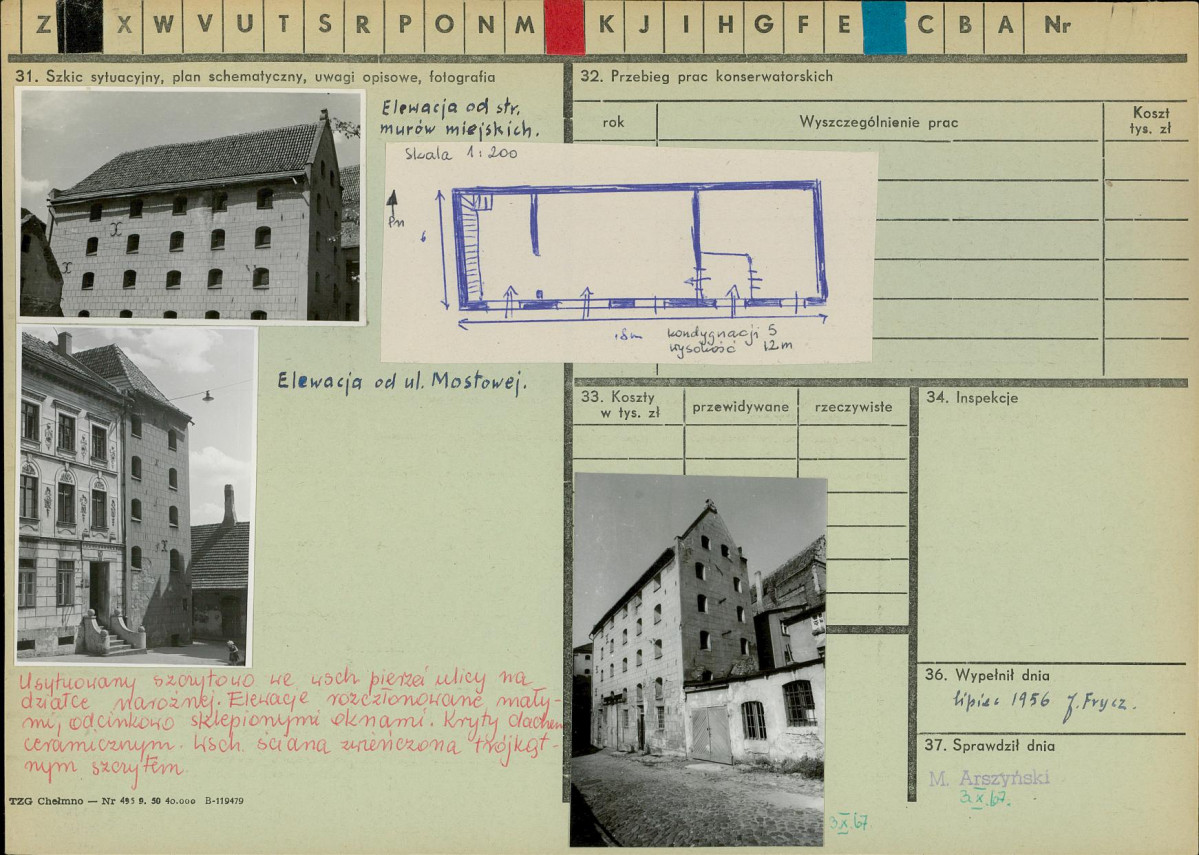 Z X W V U T S R P O N M K J I H G F E C B A Nr
31. Szkic sytuacyjny, plan schematyczny, uwagi opisowe, fotografia
Elewacja od str.
murów miejskich.
Skala 1:200
Pn
6
18m
kondygnacji 5
wysokość 12 m
Elewacja od ul. Mostowej.
Usytuowany szczytowo we wsch pierzei ulicy na
działce narożnej. Elewacje rozczłonowane mały-
mi, odcinkowo sklepionymi oknami. Kryty dachem
ceramicznym. Wsch. ściana zwieńczona trójkąt-
nym szczytem.
TZG Chełmno — Nr 495 9. 50 40.000 B-119479
32. Przebieg prac konserwatorskich
rok
Wyszczególnienie prac
Koszt
tys. zł
33. Koszty
w tys. zł
przewidywane
rzeczywiste
3.X.67.
34. Inspekcje
36. Wypełnił dnia
lipiec 1956 J. Frycz.
37. Sprawdził dnia
M. Arszyński
3.X.67.